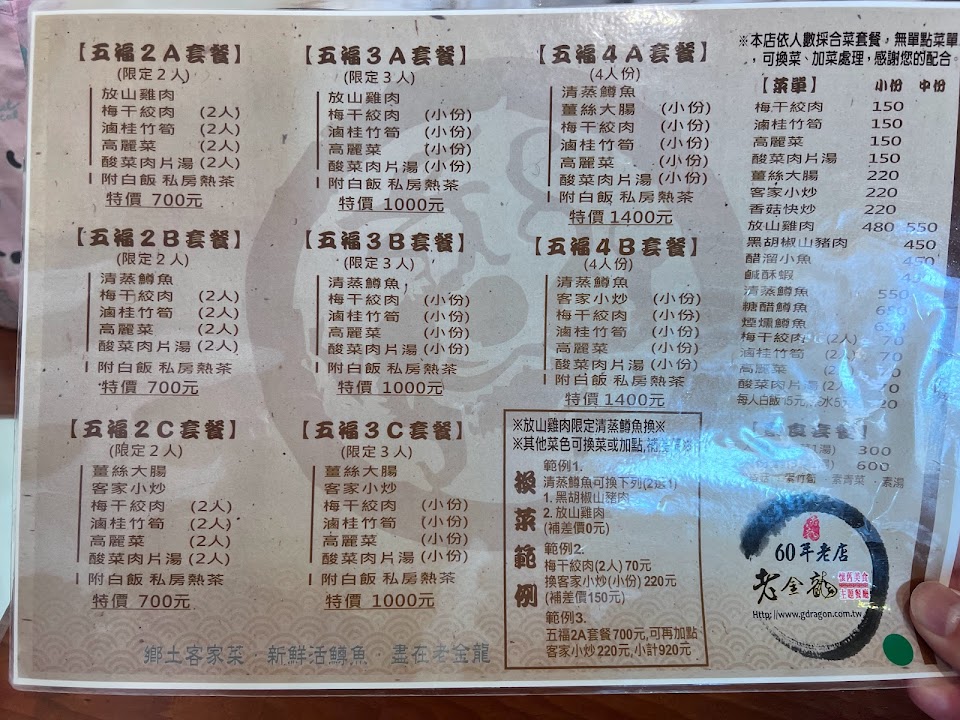 【五福2A套餐】
(限定2人)
放山雞肉
梅干絞肉 (2人)
滷桂竹筍 (2人)
高麗菜 (2人)
酸菜肉片湯 (2人)
附白飯 私房熱茶
特價 700元
【五福2B套餐】
(限定2人)
清蒸鱒魚
梅干絞肉 (2人)
滷桂竹筍 (2人)
高麗菜 (2人)
酸菜肉片湯 (2人)
附白飯 私房熱茶
特價 700元
【五福2C套餐】
(限定2人)
薑絲大腸
客家小炒
梅干絞肉 (2人)
滷桂竹筍 (2人)
高麗菜 (2人)
酸菜肉片湯 (2人)
附白飯 私房熱茶
特價 700元
【五福3A套餐】
(限定3人)
放山雞肉
梅干絞肉 (小份)
滷桂竹筍 (小份)
高麗菜 (小份)
酸菜肉片湯 (小份)
附白飯 私房熱茶
特價 1000元
【五福3B套餐】
(限定3人)
清蒸鱒魚
梅干絞肉 (小份)
滷桂竹筍 (小份)
高麗菜 (小份)
酸菜肉片湯 (小份)
附白飯 私房熱茶
特價 1000元
【五福3C套餐】
(限定3人)
薑絲大腸
客家小炒
梅干絞肉 (小份)
滷桂竹筍 (小份)
高麗菜 (小份)
酸菜肉片湯 (小份)
附白飯 私房熱茶
特價 1000元
【五福4A套餐】
(4人份)
清蒸鱒魚
薑絲大腸 (小份)
梅干絞肉 (小份)
滷桂竹筍 (小份)
高麗菜 (小份)
酸菜肉片湯 (小份)
附白飯 私房熱茶
特價 1400元
【五福4B套餐】
(4人份)
清蒸鱒魚
客家小炒 (小份)
梅干絞肉 (小份)
滷桂竹筍 (小份)
高麗菜 (小份)
酸菜肉片湯 (小份)
附白飯 私房熱茶
特價 1400元
※放山雞肉限定清蒸鱒魚換※
※其他菜色可換菜或加點,補差價
換菜範例
範例1.
清蒸鱒魚可換下列(2選1)
1. 黑胡椒山豬肉
2. 放山雞肉
(補差價0元)
範例2.
梅干絞肉(2人) 70元
換客家小炒(小份) 220元
(補差價150元)
範例3.
五福2A套餐700元,可再加點
客家小炒220元,小計920元
※本店依人數採合菜套餐，無單點菜單
，可換菜、加菜處理，感謝您的配合。
【菜單】 小份 中份
梅干絞肉 150
滷桂竹筍 150
高麗菜 150
酸菜肉片湯 150
薑絲大腸 220
客家小炒 220
香菇快炒 220
放山雞肉 480 550
黑胡椒山豬肉 450
醋溜小魚 450
鹹酥蝦
清蒸鱒魚 550
糖醋鱒魚 650
煙燻鱒魚 650
梅干絞肉(2人) 70
滷桂竹筍 70
高麗菜 70
酸菜肉片湯 70
每人白飯15元
套餐】
300
600
素竹筍 · 素青菜 · 素湯
60年老店
老金龍
懷舊美食
主題餐廳
Http://www.gdragon.com.tw
鄉土客家菜 · 新鮮活鱒魚 · 盡在老金龍